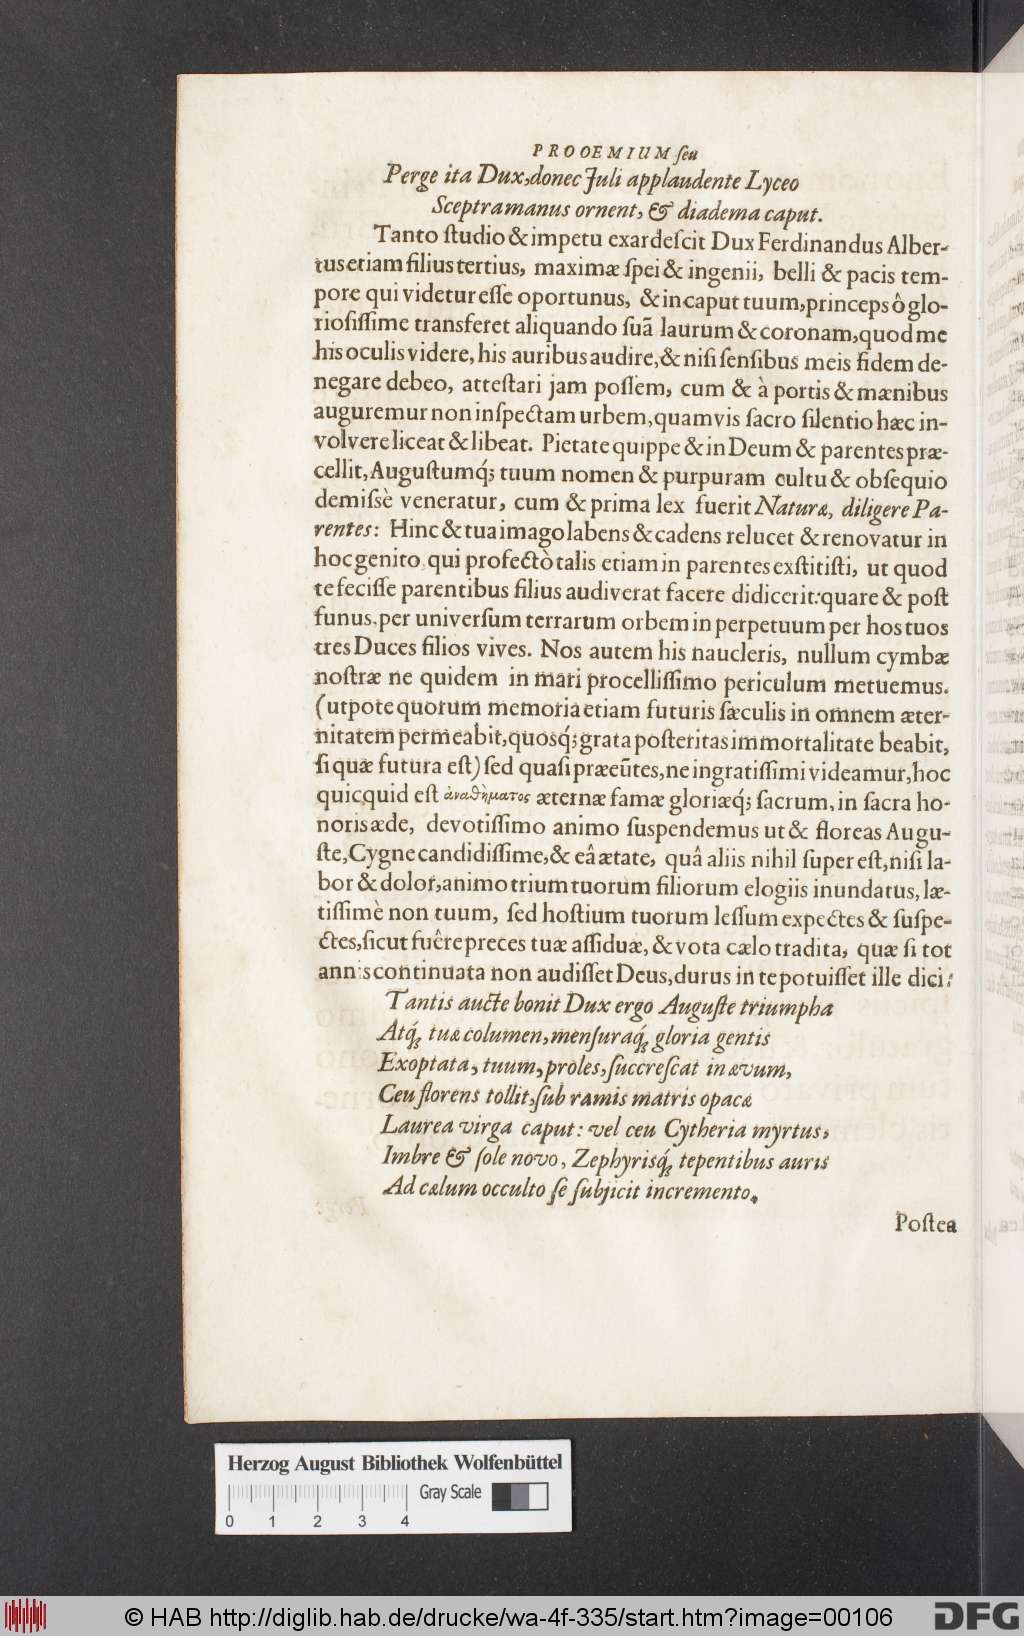 PROOEMIUM ſeu
Perge ita Dux, donec Juli applaudente Lyceo
Sceptra manus ornent, & diadema caput.
Tanto ſtudio & impetu exardeſcit Dux Ferdinandus Alber-
tus etiam filius tertius, maximæ ſpei & ingenii, belli & pacis tem-
pore qui videtur eſſe oportunus, & in caput tuum, princeps ô glo-
rioſiſſime transferet aliquando ſuā laurum & coronam, quod me
his oculis videre, his auribus audire, & niſi ſenſibus meis fidem de-
negare debeo, atteſtari jam poſſem, cum & à portis & mænibus
auguremur non inſpectam urbem, quamvis ſacro ſilentio hæc in-
volvere liceat & libeat. Pietate quippe & in Deum & parentes præ-
cellit, Auguſtumq́; tuum nomen & purpuram cultu & obſequio
demiſsè veneratur, cum & prima lex fuerit Naturæ, diligere Pa-
rentes: Hinc & tua imago labens & cadens relucet & renovatur in
hoc genito, qui profectò talis etiam in parentes exſtitiſti, ut quod
te feciſſe parentibus filius audiverat facere didicerit: quare & poſt
funus, per univerſum terrarum orbem in perpetuum per hos tuos
tres Duces filios vives. Nos autem his naucleris, nullum cymbæ
noſtræ ne quidem in mari procelliſſimo periculum metuemus.
(utpote quorum memoria etiam futuris ſæculis in omnem æter-
nitatem permeabit, quosq́; grata poſteritas immortalitate beabit,
ſi quæ futura eſt) ſed quaſi præeūtes, ne ingratiſſimi videamur, hoc
quicquid eſt ἀναθήματος æternæ famæ gloriæq́; ſacrum, in ſacra ho-
noris æde, devotiſſimo animo ſuspendemus ut & floreas Augu-
ſte, Cygne candidiſſime, & eâ ætate, quâ aliis nihil ſuper eſt, niſi la-
bor & dolor, animo trium tuorum filiorum elogiis inundatus, læ-
tiſſimè non tuum, ſed hoſtium tuorum leſſum expectes & ſuſpe-
ctes, ſicut fuêre preces tuæ aſſiduæ, & vota cælo tradita, quæ ſi tot
annis continuata non audiſſet Deus, durus in te potuiſſet ille dici:
Tantis aucte bonis Dux ergo Auguſte triumpha
Atq́; tuæ columen, menſuraq́; gloria gentis
Exoptata, tuum, proles, ſuccreſcat in ævum,
Ceu florens tollit, ſub ramis matris opacæ
Laurea virga caput: vel ceu Cytheria myrtus,
Imbre & ſole novo, Zephyrisq́; tepentibus auris
Ad cælum occulto ſe ſubjicit incremento.
Poſtea
Herzog August Bibliothek Wolfenbüttel
Gray Scale
0 1 2 3 4
© HAB http://diglib.hab.de/drucke/wa-4f-335/start.htm?image=00106
DFG